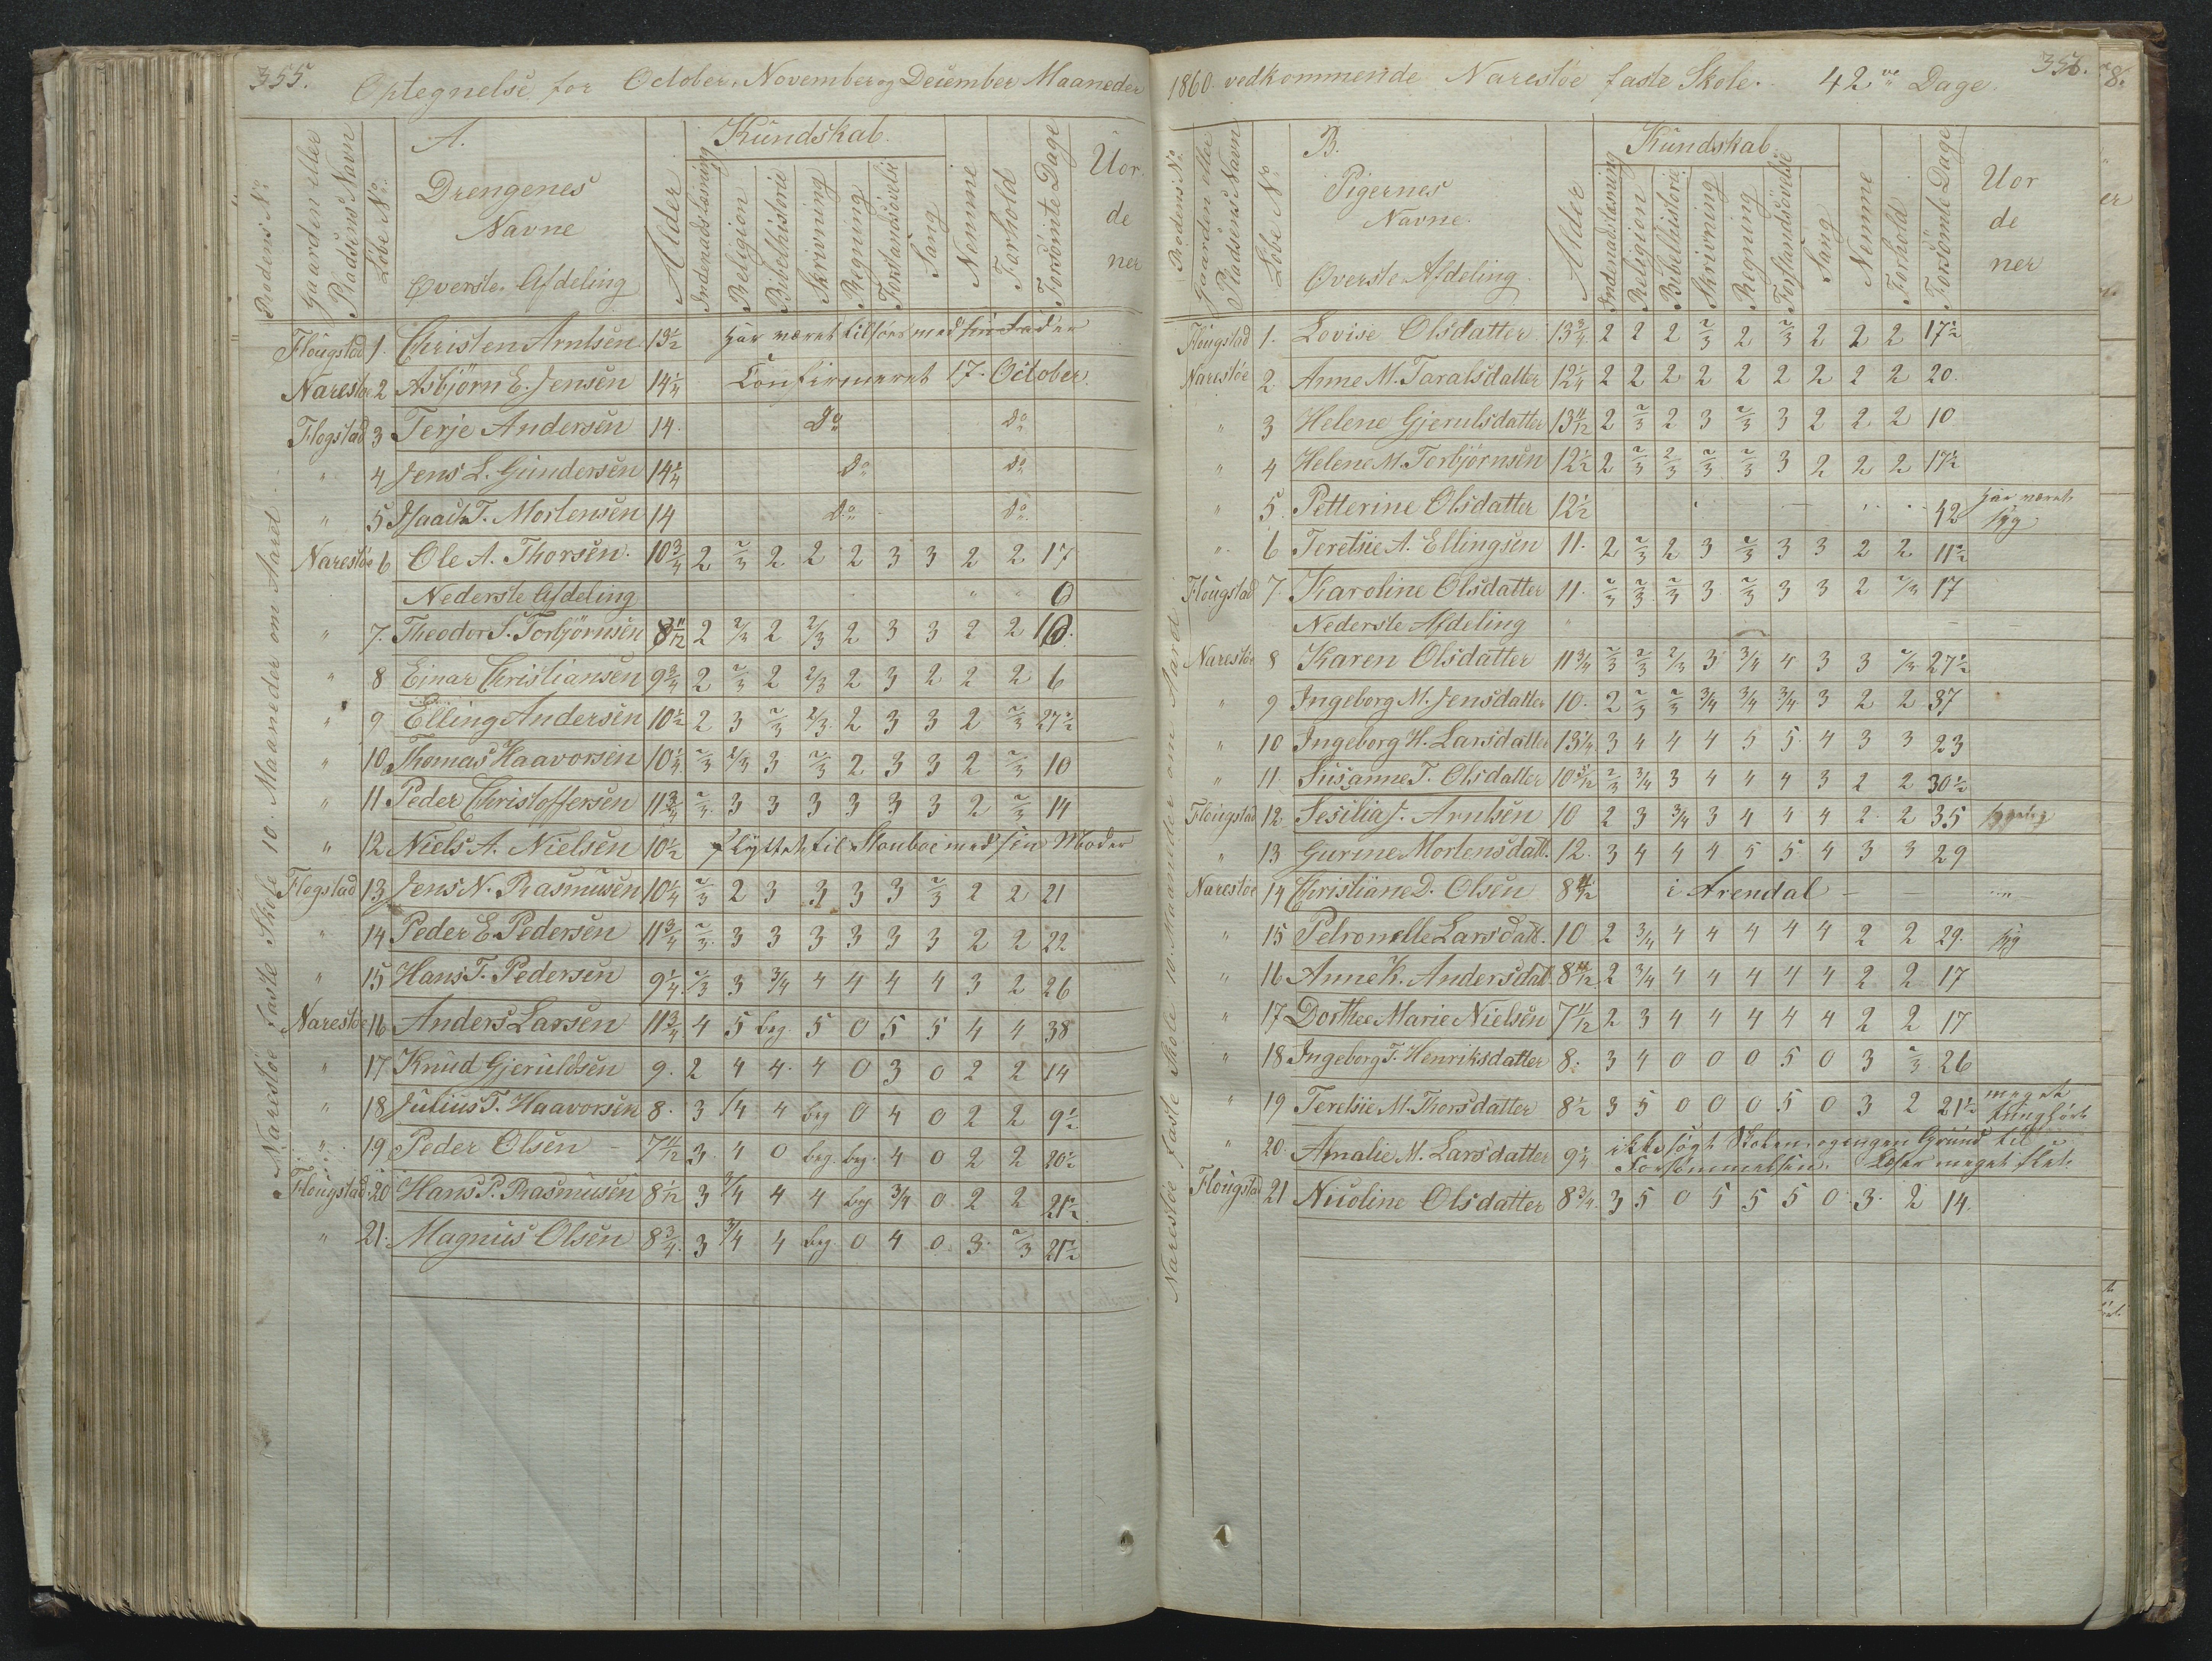 355. Optegnelse for October, November og December Maaneder
Rodens No. Gaarden eller Pladsens Navn Löbe No. A. Drengenes Navne Øverste Afdeling Alder Kundskab Indenadslæsning Religion Bibelhistorie Skrivning Regning Forstandsövelse Sang Nemme Forhold Forsömte Dage Uor de ner
Narestöe faste Skole 10. Maaneder om Aaret.
Flougstad 1. Christen Arntsen 13½ har været tilsöes med sin Fader
Narestöe 2 Asbjørn E. Jensen 14¼ Confirmeret 17. October
Flogstad 3 Terje Andersen 14. Do Do
" 4 Jens L. Gundersen 14¼ Do Do
" 5 Isaach T. Mortensen 14 Do Do
Narestöe 6 Ole A. Thorsen. 10¾ 2 2/3 2 2 2 3 3 2 2 17
Nederste Afdeling " " 0
" 7. Theodor S. Torbjörnsen 8 11/12 2 2/3 2 2/3 2 3 3 2 2 10.
" 8 Einar Christiansen 9¾ 2 2/3 2 2/3 2 3 2 2 2 6
" 9 Elling Andersen 10½ 2 3 2/3 2/3 2 3 3 2 2/3 27½
" 10 Thomas Haavorsen 10¼ 2/3 2/3 3 2/3 2 3 3 2 2/3 10
" 11 Peder Christoffersen 11¾ 2/3 3 3 3 3 3 3 2 2/3 14
" 12 Niels A. Nielsen 10½ flyttet til Stouboe med sin Moder
Flogstad 13 Jens N. Rasmusen 10¼ 2/3 2 3 3 3 3 2/3 2 2 21
" 14 Peder E. Pedersen 11¾ 2/3 3 3 3 3 3 3 2 2 22
" 15 Hans T. Pedersen 9¼ 2/3 3 3/4 4 4 4 4 3 2 26
Narestöe 16 Anders Larsen 11¾ 4 5 beg. 5 0 5 5 4 4 38
" 17 Knud Gjeruldsen 9. 2 4 4. 4 0 3 0 2 2 14
" 18 Julius T. Haavorsen 8. 3 3/4 4 beg 0 4 0 2 2 9½
" 19 Peder Olsen 7 11/12 3. 4 0 beg. beg. 4 0 2 2 20½
Flougstad 20 Hans P. Rasmusen 8 1/12 3 3/4 4 4 beg 3/4 0 2 2 21½
" 21. Magnus Olsen 8¾ 3 3/4 4 beg. 0 4 0 3. 2/3 21½
1860. vedkommende Narestöe faste Skole. 42 Dage. 356.
Rodens No. Gaarden eller Pladsens Navn Löbe No B. Pigernes Navne. Øverste Afdeling Alder Kundskab Indenadslæsning Religion Bibelhistorie Skrivning Regning Forstandsövelse Sang Nemme Forhold Forsömte Dage Uor de ner
Narestöe faste Skole 10. Maaneder om Aaret
Flougstad 1. Lovise Olsdatter 13¾ 2 2 2 2/3 2 2/3 2 2 2 17½
Narestöe 2. Anne M. Taralsdatter 12¼ 2 2 2 2 2 2 2 2 2 20.
" 3 Helene Gjerulsdatter 13 11/12 2 2/3 2 3 2/3 3 2 2 2 10
" 4 Helene M. Torbjörnsen 12½ 2 2/3 2/3 2/3 2/3 3 2 2 2 17½
" 5. Petterine Olsdatter 12½ 42 har været syg
" 6 Teretsie A. Ellingsen 11. 2 2/3 2 3 2/3 3 3 2 2 11½
Flougstad 7. Karoline Olsdatter 11. 2/3 2/3 2/3 3 2/3 3 3 2 2/3 17
Nederste Afdeling
Narestöe 8 Karen Olsdatter 11¾ 2/3 2/3 2/3 3 3/4 4 3 3 2/3 27½
" 9 Ingeborg M. Jensdatter 10. 2 2/3 2/3 3/4 3/4 3/4 3 2 2 37
" 10 Ingeborg H. Larsdatter 13¼ 3 4 4 4 5 5 4 3 3 23
" 11. Susanne T. Olsdatter 10 5/12 2/3 3/4 3 4 4 4 3 2 2 30½
Flougstad 12. Sesilia J. Arntsen 10 2 3 3/4 3 4 4 4 2. 2 35
" 13 Gurine Mortensdatt. 12. 3 4 4 4 5 5 4 3 3 29
Narestöe 14 Christiane D. Olsen 8 11/12 i Arendal "
" 15 Petronelle Larsdatt. 10 2 3/4 4 4 4 4 4 2 2 29. syg
" 16 Anne K. Andersdatt 8 11/12 2 3/4 4 4 4 4 4 2 2 17
" 17 Dorthee Marie Nielsen 7 11/12 2 3 4 4 4 4 4 2 2 17
" 18 Ingeborg T. Henriksdatter 8. 3 4 0 0 0 5 0 3 2/3 26
" 19 Teretsie M. Thorsdatter 8½ 3 5 0 0 0 5 0 3 2 21½ meget tunghört
" 20. Amalie M. Larsdatter 9¼ ikke sögt Skolen, og ingen Grund til Forsömmelsen. Læser meget slet.
Flougstad 21 Nicoline Olsdatter 8¾ 3 5 0 5 5 5 0 3. 2 14.